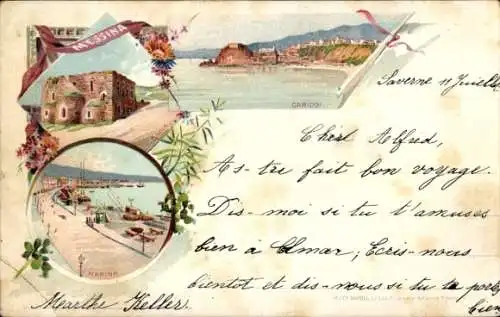 MESSINA
CARIDDI
Saverne 11 Juillet
Cher Alfred,
As-tu fait bon voyage.
Dis-moi si tu t'amuses
bien à Colmar; Ecris-nous
bientôt et dis-nous si tu te portes
bien
MARINA
Marthe Keller